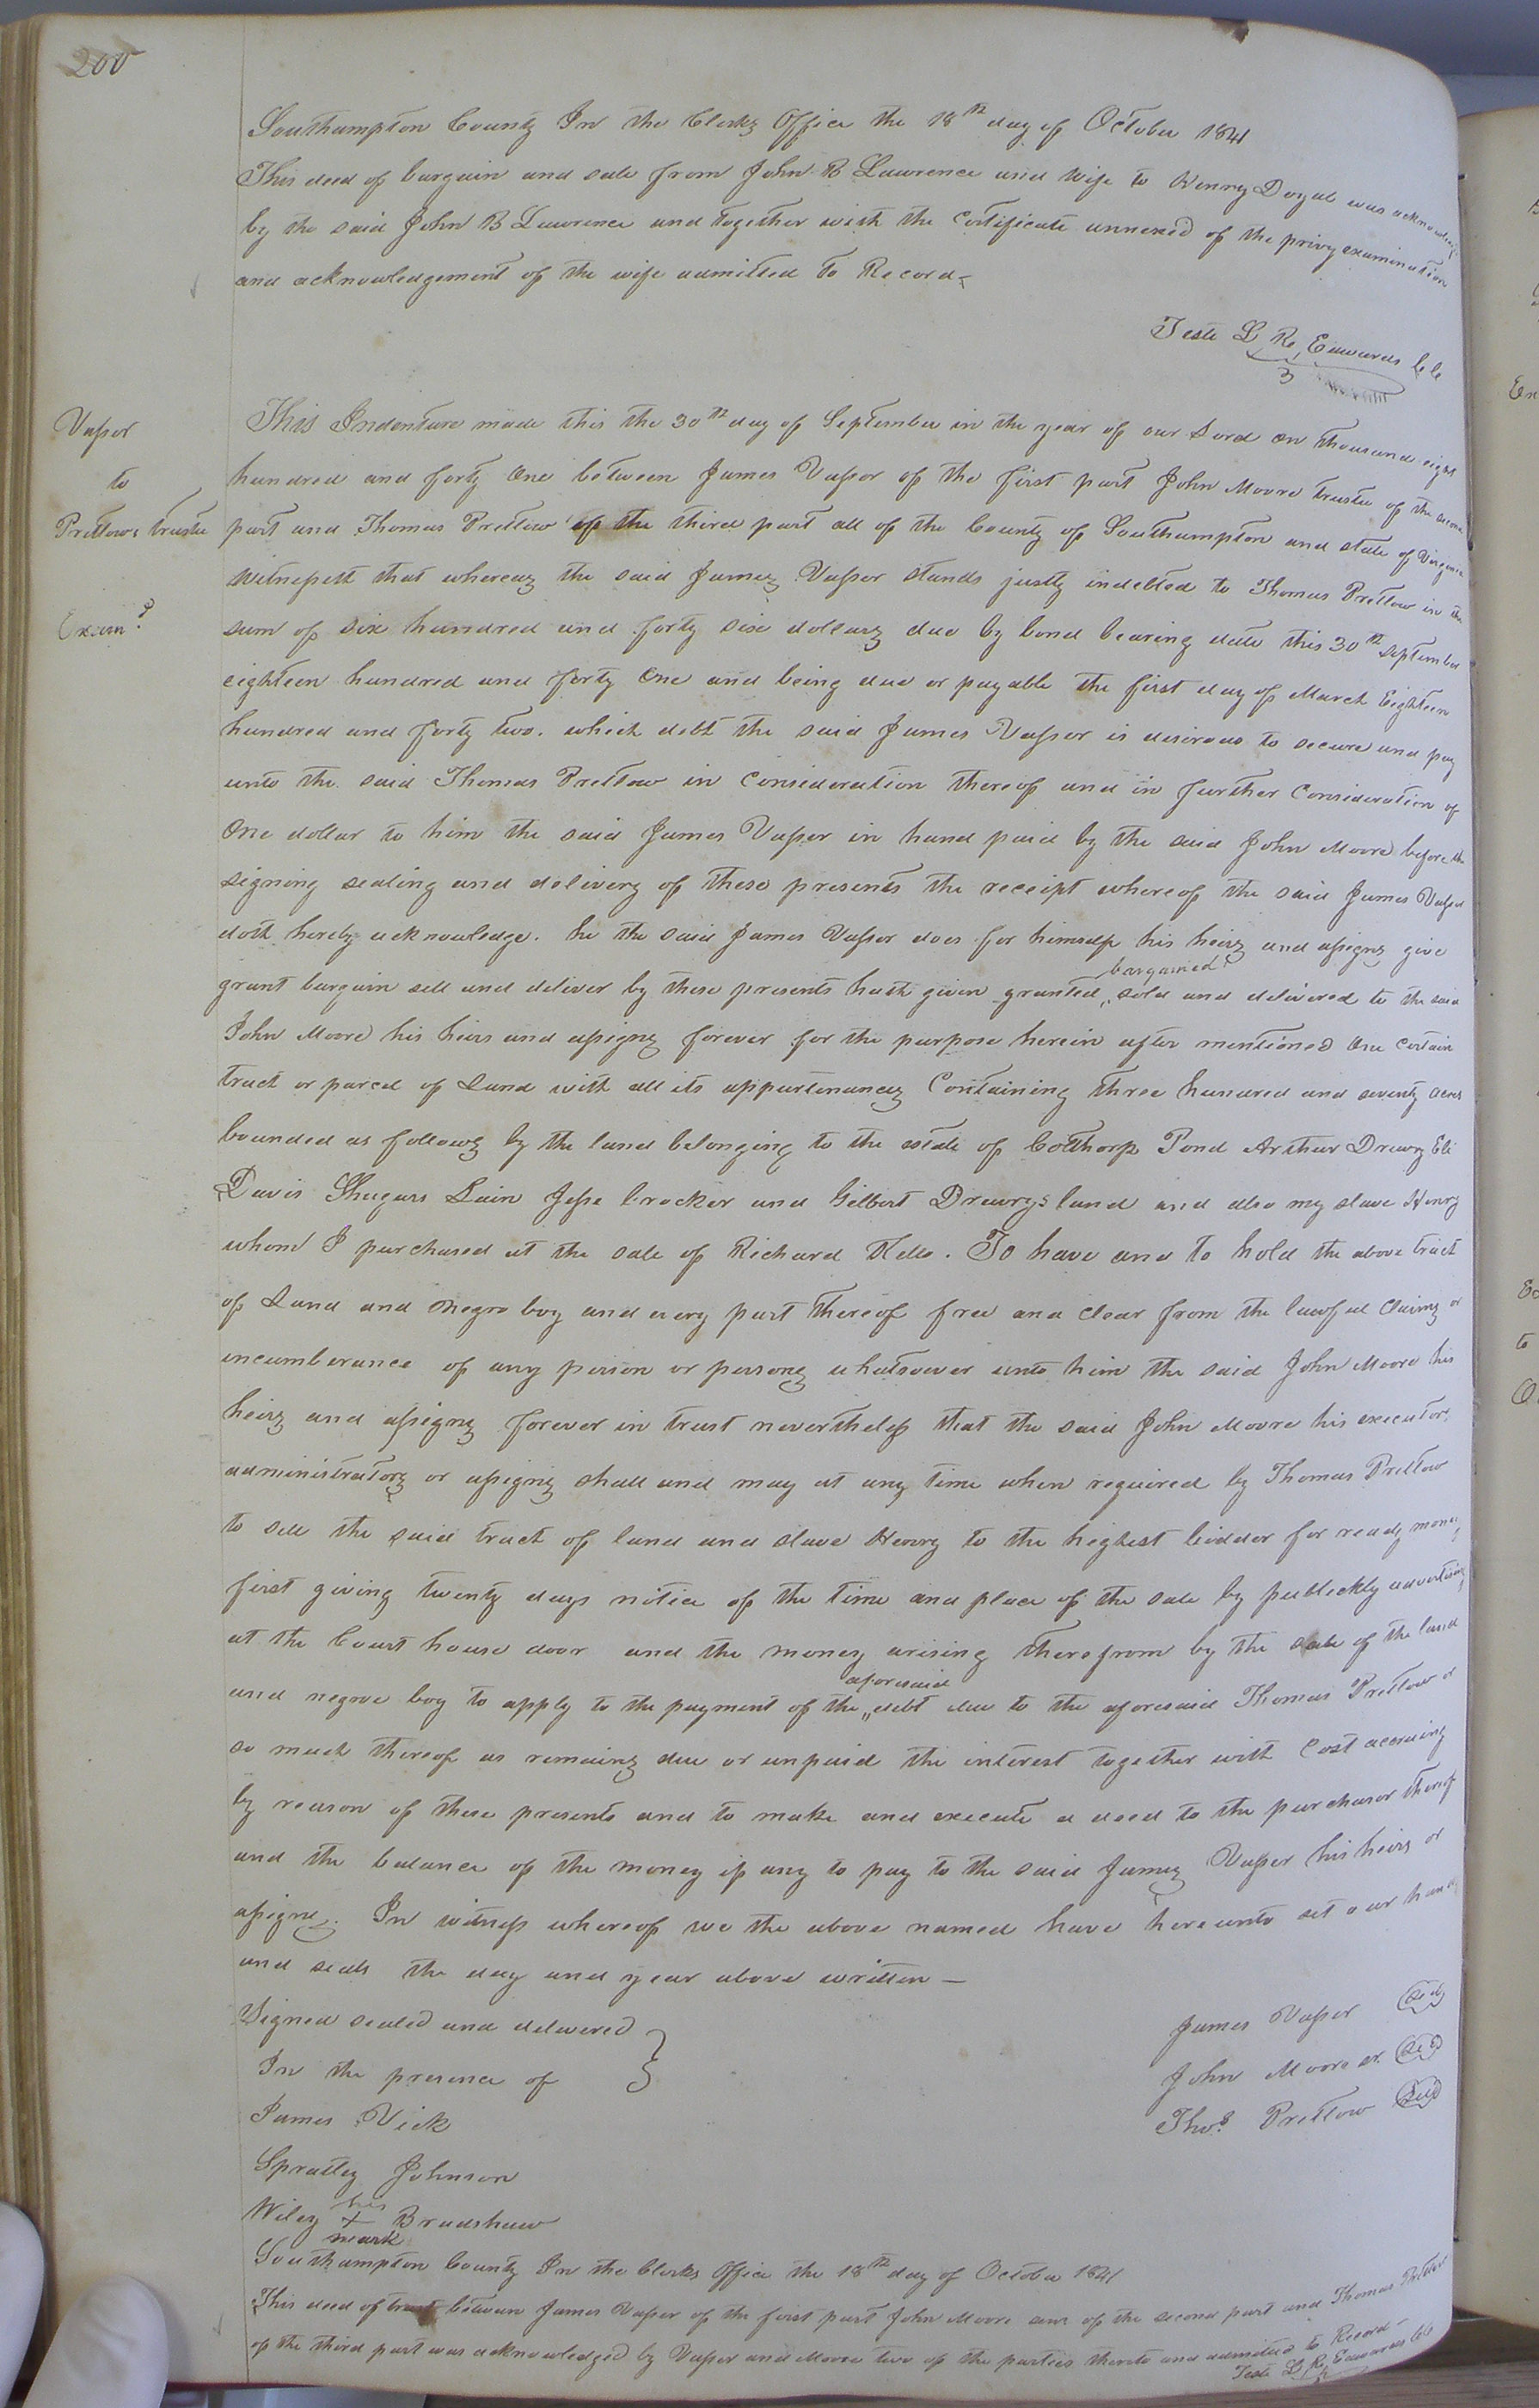 200
Southampton County In the Clerks Office the 18th day of October 1841
This deed of bargain and sale from John B Lawrence and wife to Henry Doyal was acknowledged
by the said John B Lawrence and together with the Certificate annexed of the privy examination
and acknowledgement of the wife admitted to Record
Teste L R Edwards Cle
Vasser
to
Pretlows trustee
Examd
This Indenture made this the 30th day of September in the year of our Lord on thousand eight
hundred and forty One between James Vasser of the first part John Moore trustee of the second
part and Thomas Pretlow of the third part all of the County of Southampton and state of Virginia
Witnesseth that whereas the said James Vasser stands justly indebted to Thomas Pretlow in the
sum of six hundred and forty six dollars due by bond bearing date this 30th September
eighteen hundred and forty One and being due or payable the first day of March Eighteen
hundred and forty two. which debt the said James Vasser is desirous to secure and pay
unto the said Thomas Pretlow in Consideration thereof and in further Consideration of
One dollar to him the said James Vasser in hand paid by the said John Moore before the
signing sealing and delivery of these presents the receipt whereof the said James Vasser
doth hereby acknowledge. he the said James Vasser does for himself his heirs and assigns give
grant bargain sell and deliver by these presents hath given granted, bargained sold and delivered to the said
John Moore his heirs and assigns forever for the purpose herein after mentioned One Certain
tract or parcel of Land with all its appurtenances Containing three hundred and seventy acres
bounded as follows by the land belonging to the estate of Colthorp Pond Arthur Drewry Eli
Davis Shugars Lain Jesse Crocker and Gilbert Drewrys land and also my slave Henry
whom I purchased at the sale of Richard Kello. To have and to hold the above tract
of Land and Negro boy and every part thereof free and clear from the lawful Claims or
incumberance of any person or persons whatsoever unto him the said John Moore his
heirs and assigns forever in trust nevertheless that the said John Moore his executors
administrators or assigns shall and may at any time when required by Thomas Pretlow
to sell the said tract of land and slave Henry to the highest bidder for ready money
first giving twenty days notice of the time and place of the sale by publickly advertising
at the Court house door and the money arising therefrom by the sale of the land
and negroe boy to apply to the payment of the aforesaid debt due to the aforesaid Thomas Pretlow or
so much thereof as remains due or unpaid the interest together with Cost accruing
by reason of these presents and to make and execute a deed to the purchaser thereof
and the balance of the money if any to pay to the said James Vasser his heirs or
assigns. In witness whereof we the above named have hereunto set our hands
and seals the day and year above written —
Signed sealed and delivered
In the presence of
James Vick
Spratley Johnson
Wiley his + mark Bradshaw
James Vasser Seal
John Moore sr. Seal
Thos. Pretlow Seal
Southampton County In the Clerks Office the 18th day of October 1841
This deed of trust between James Vasser of the first part John Moore senr of the second part and Thomas Pretlow
of the third part was acknowledged by Vasser and Moore two of the parties thereto and admitted to Record
Teste L R Edwards Cle